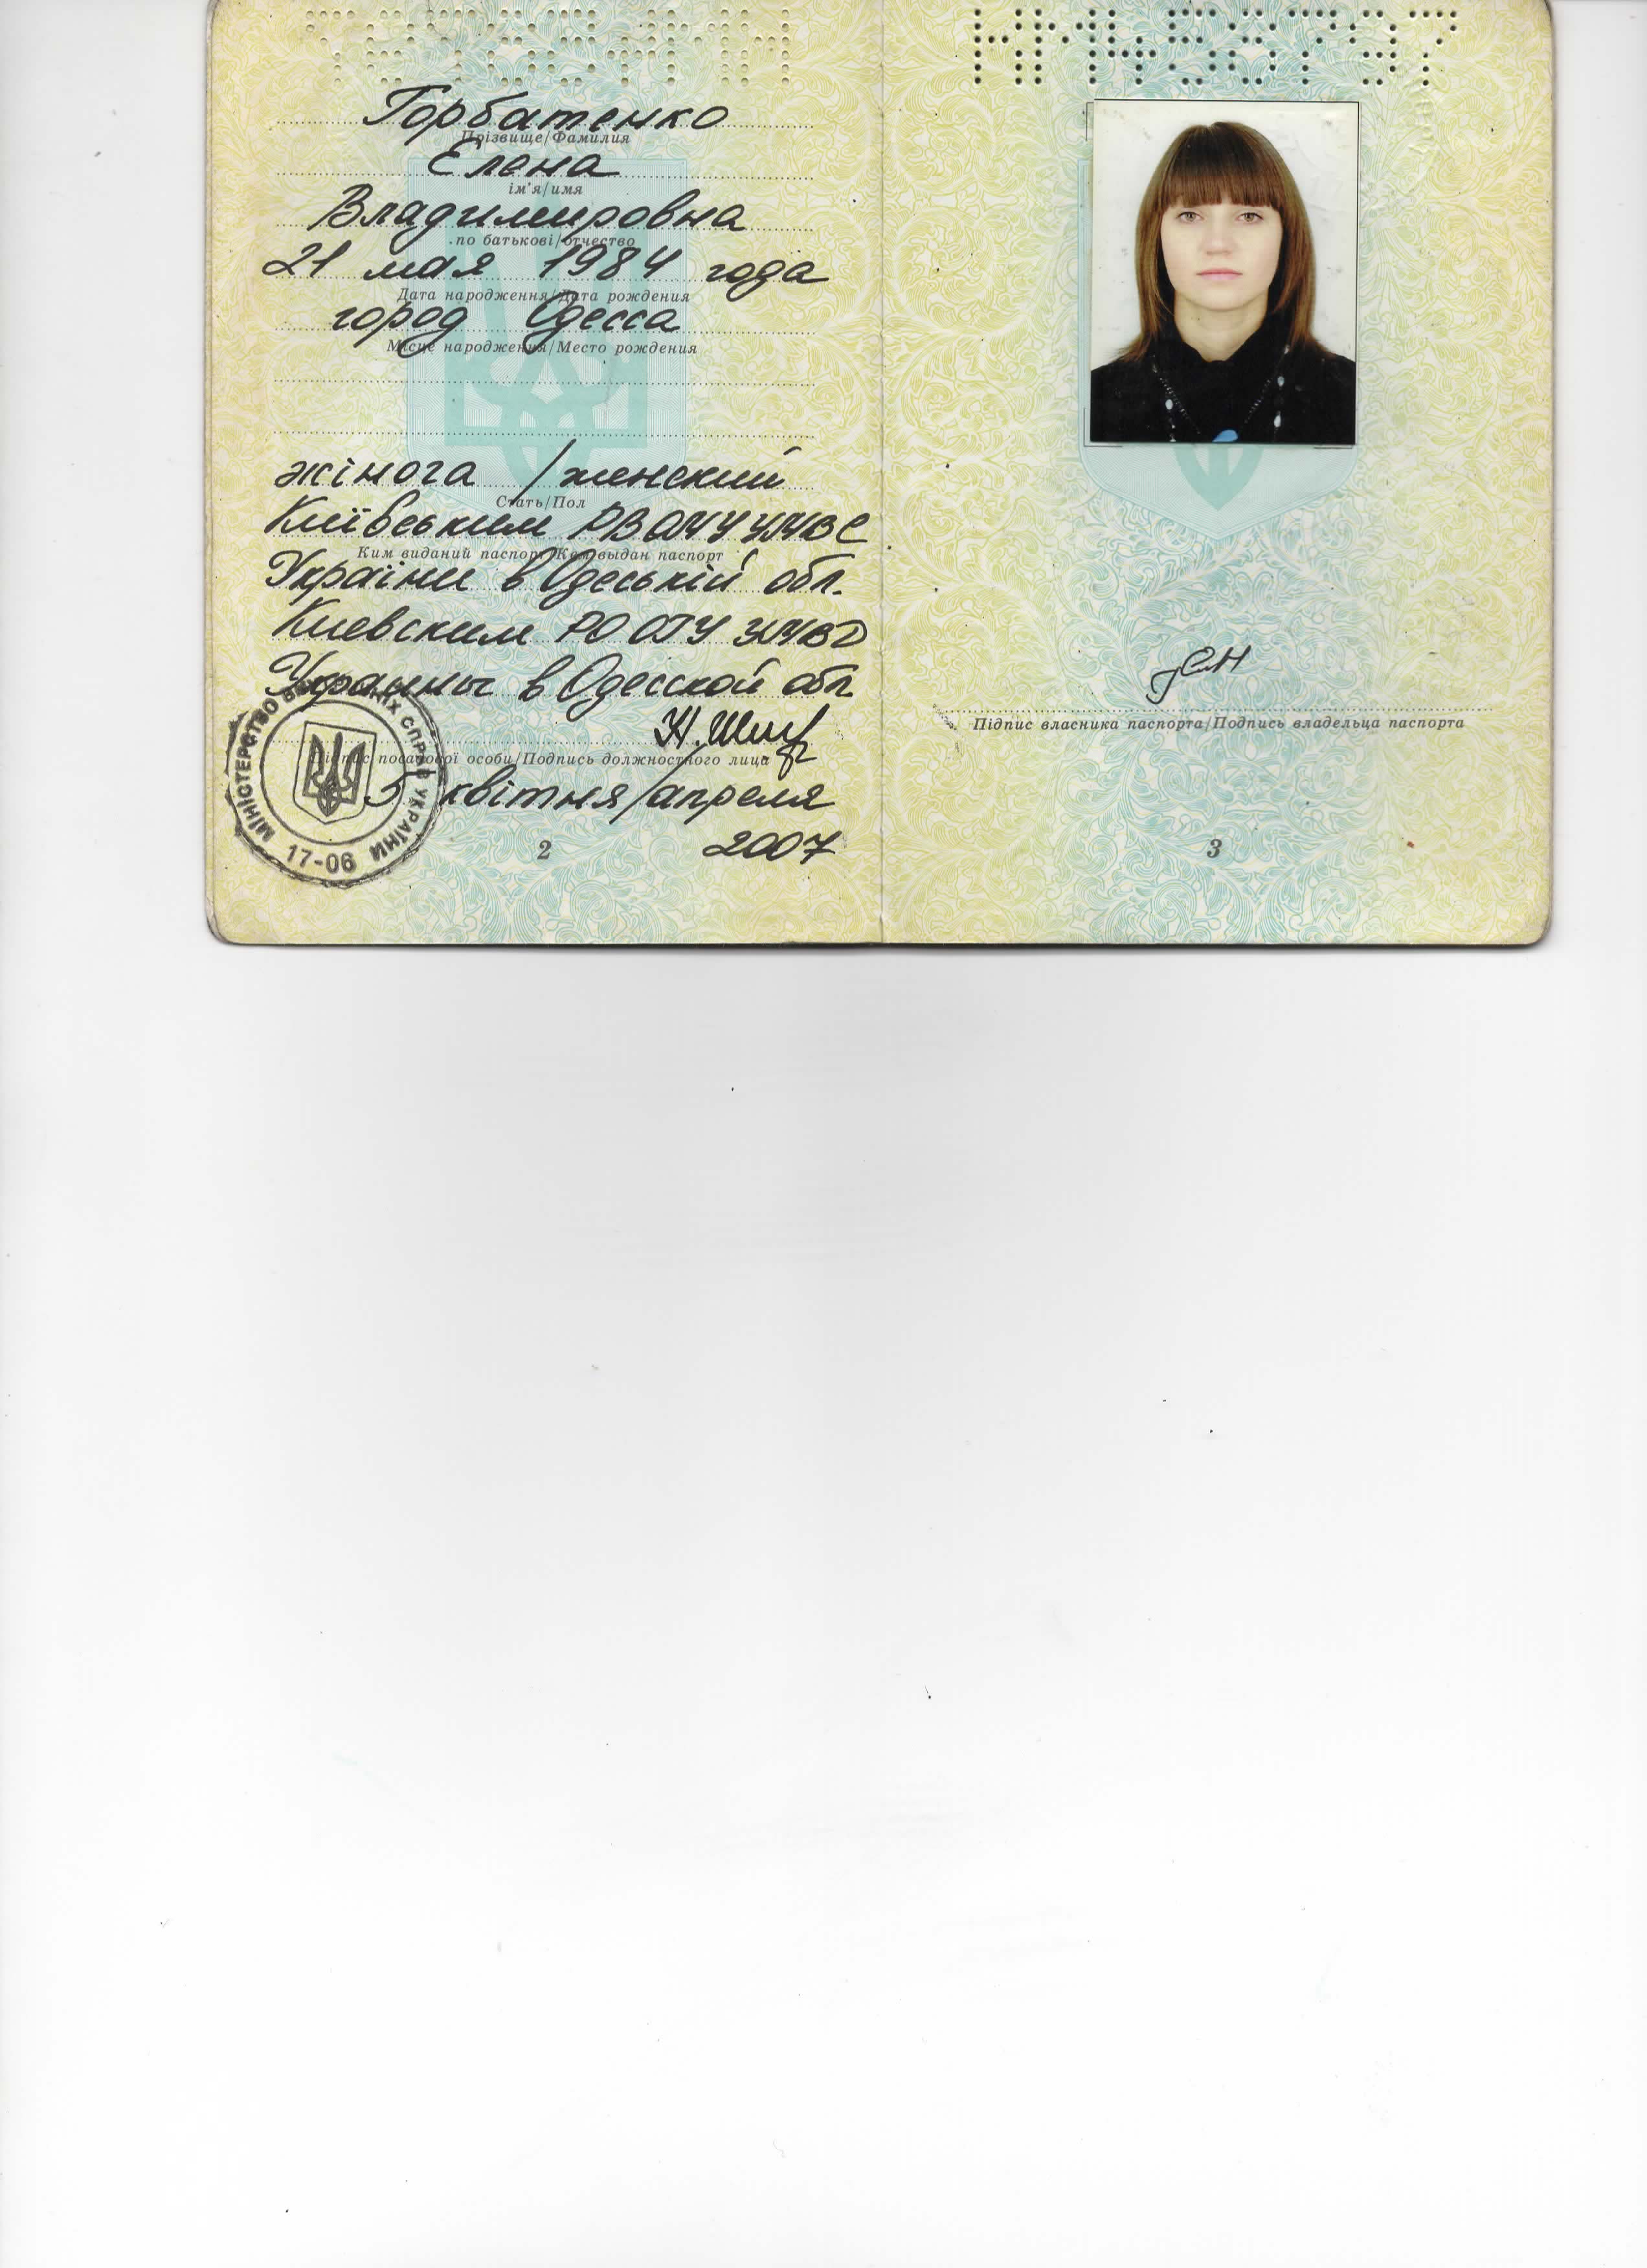 КМ456797
Горбатенко
Прізвище/Фамилия
Елена
ім'я/имя
Владимировна
по батькові/отчество
21 мая 1984 года
Дата народження/Дата рождения
город Одесса
Місце народження/Место рождения
жіноча / женский
Стать/Пол
Київським РВ ОМУ УМВС
Ким виданий паспорт/Кем выдан паспорт
України в Одеській обл.
Киевским РО ОГУ УМВД
Украины в Одесской обл
Підпис посадової особи/Подпись должностного лица
5 квітня/апреля
2007
МІНІСТЕРСТВО ВНУТРІШНІХ СПРАВ УКРАЇНИ
17-06
2
Підпис власника паспорта/Подпись владельца паспорта
3